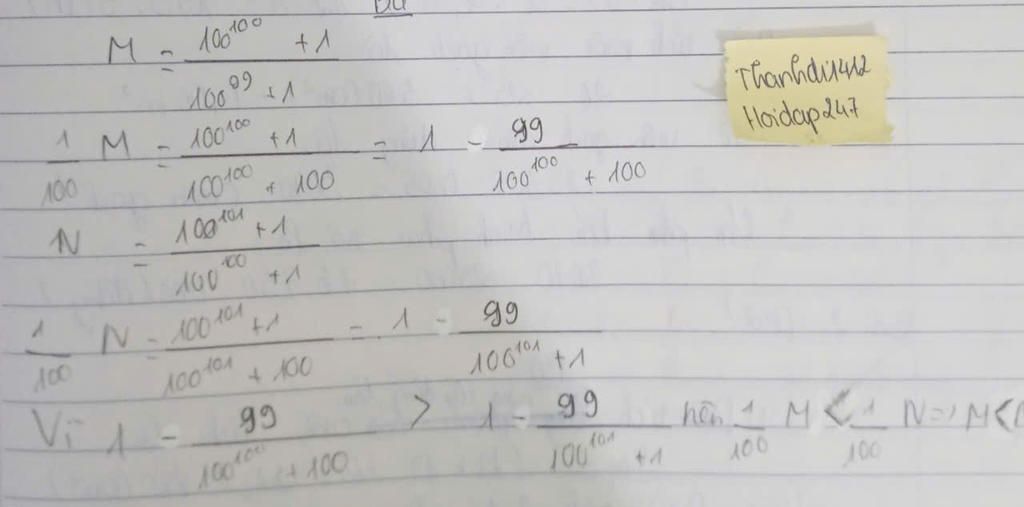 Bài
M = \frac{100^{100} + 1}{100^{99} + 1}
Thanhdi1412
Hoidap247
\frac{1}{100} M = \frac{100^{100} + 1}{100^{100} + 100} = 1 - \frac{99}{100^{100} + 100}
N = \frac{100^{101} + 1}{100^{100} + 1}
\frac{1}{100} N = \frac{100^{101} + 1}{100^{101} + 100} = 1 - \frac{99}{100^{101} + 1}
Vì 1 - \frac{99}{100^{100} + 100} > 1 - \frac{99}{100^{101} + 1} nên \frac{1}{100} M < \frac{1}{100} N => M <